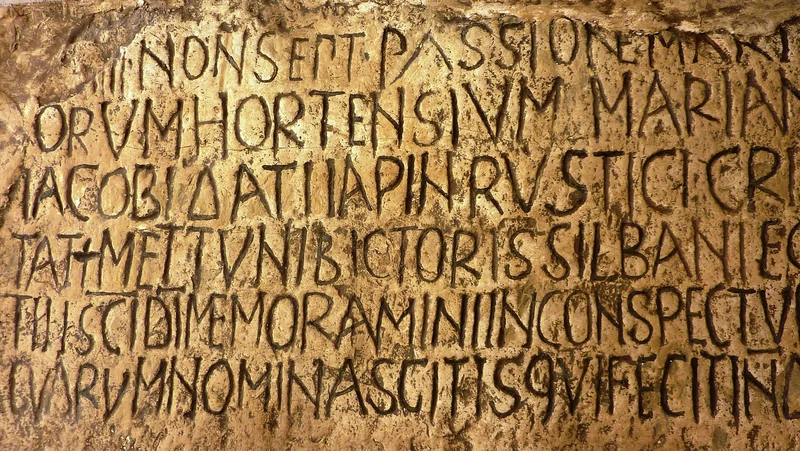 IIII NON SEPT · PASSIONE MART
ORVM HORTENSIVM MARIAN
IACOBI DATI IAPIN RVSTICI CRI
TATI METTVNI BICTORIS SILBANI EG
TII SCI DI MEMORAMINI IN CONSPECTV
QVARVM NOMINA SCITIS QVI FECIT IND